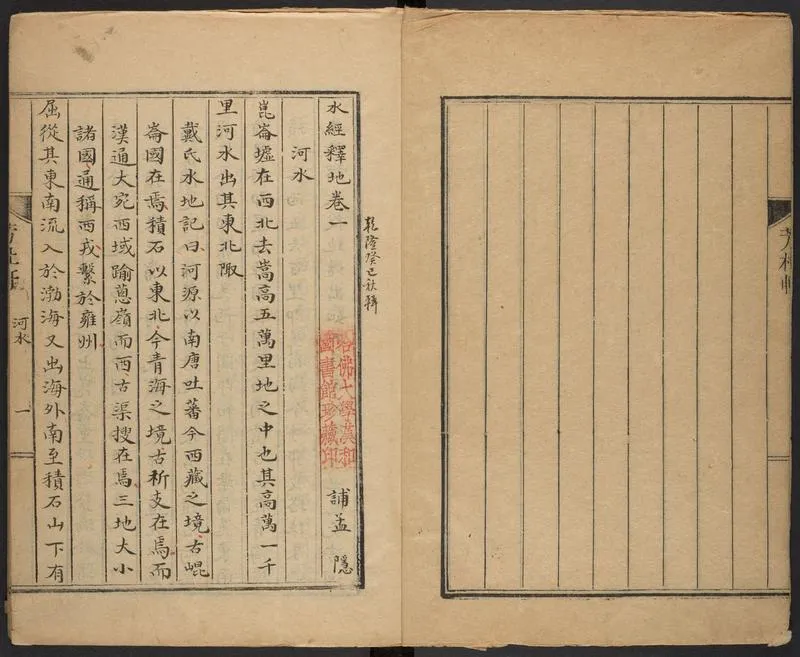 乾隆癸巳秋輯
水經釋地卷一
誧孟 隱
哈佛大學漢和
圖書館珍藏印
河水
崑崙墟在西北去嵩高五萬里地之中也其高萬一千
里河水出其東北陬
戴氏水地記曰河源以南唐吐蕃今西藏之境古崐
崙國在焉積石以東北今青海之境古析支在焉而
漢通大宛西域踰蔥嶺而西古渠搜在焉三地大小
諸國通稱西戎繫於雍州
屈從其東南流入於渤海又出海外南至積石山下有
河水
一